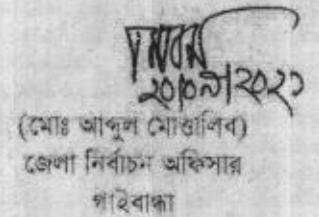 ২০/০৯/২০২১
(মোঃ আব্দুল মোত্তালিব)
জেলা নির্বাচন অফিসার
গাইবান্ধা